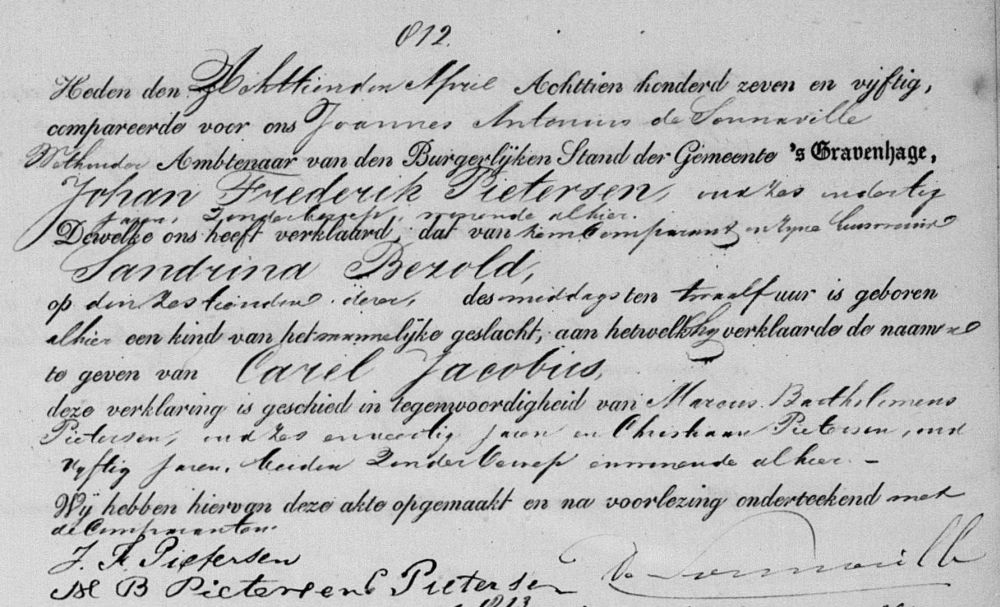 812.
Heden den Achttienden April Achttien honderd zeven en vijftig,
compareerde voor ons Joannes Antonius de Sonnaville
Wethouder Ambtenaar van den Burgerlijken Stand der Gemeente 's Gravenhage,
Johan Frederik Pietersen, oud zes en dertig
jaren, zonder beroep, wonende alhier.
Dewelke ons heeft verklaard, dat van hem Comparant en zyne huisvrouw
Sandrina Bezold,
op den zestienden dezer, des middags ten twaalf uur is geboren
alhier een kind van het mannelijke geslacht, aan hetwelk hy verklaarde de namen
te geven van Carel Jacobus,
deze verklaring is geschied in tegenwoordigheid van Marcus Bartholomeus
Pietersen, oud zes en veertig jaren en Christiaan Pietersen, oud
vyftig jaren, beiden zonder beroep en wonende alhier. –
Wij hebben hiervan deze akte opgemaakt en na voorlezing onderteekend met
de Comparanten.
J. F. Pietersen
M B Pietersen C Pietersen De Sonnaville
813